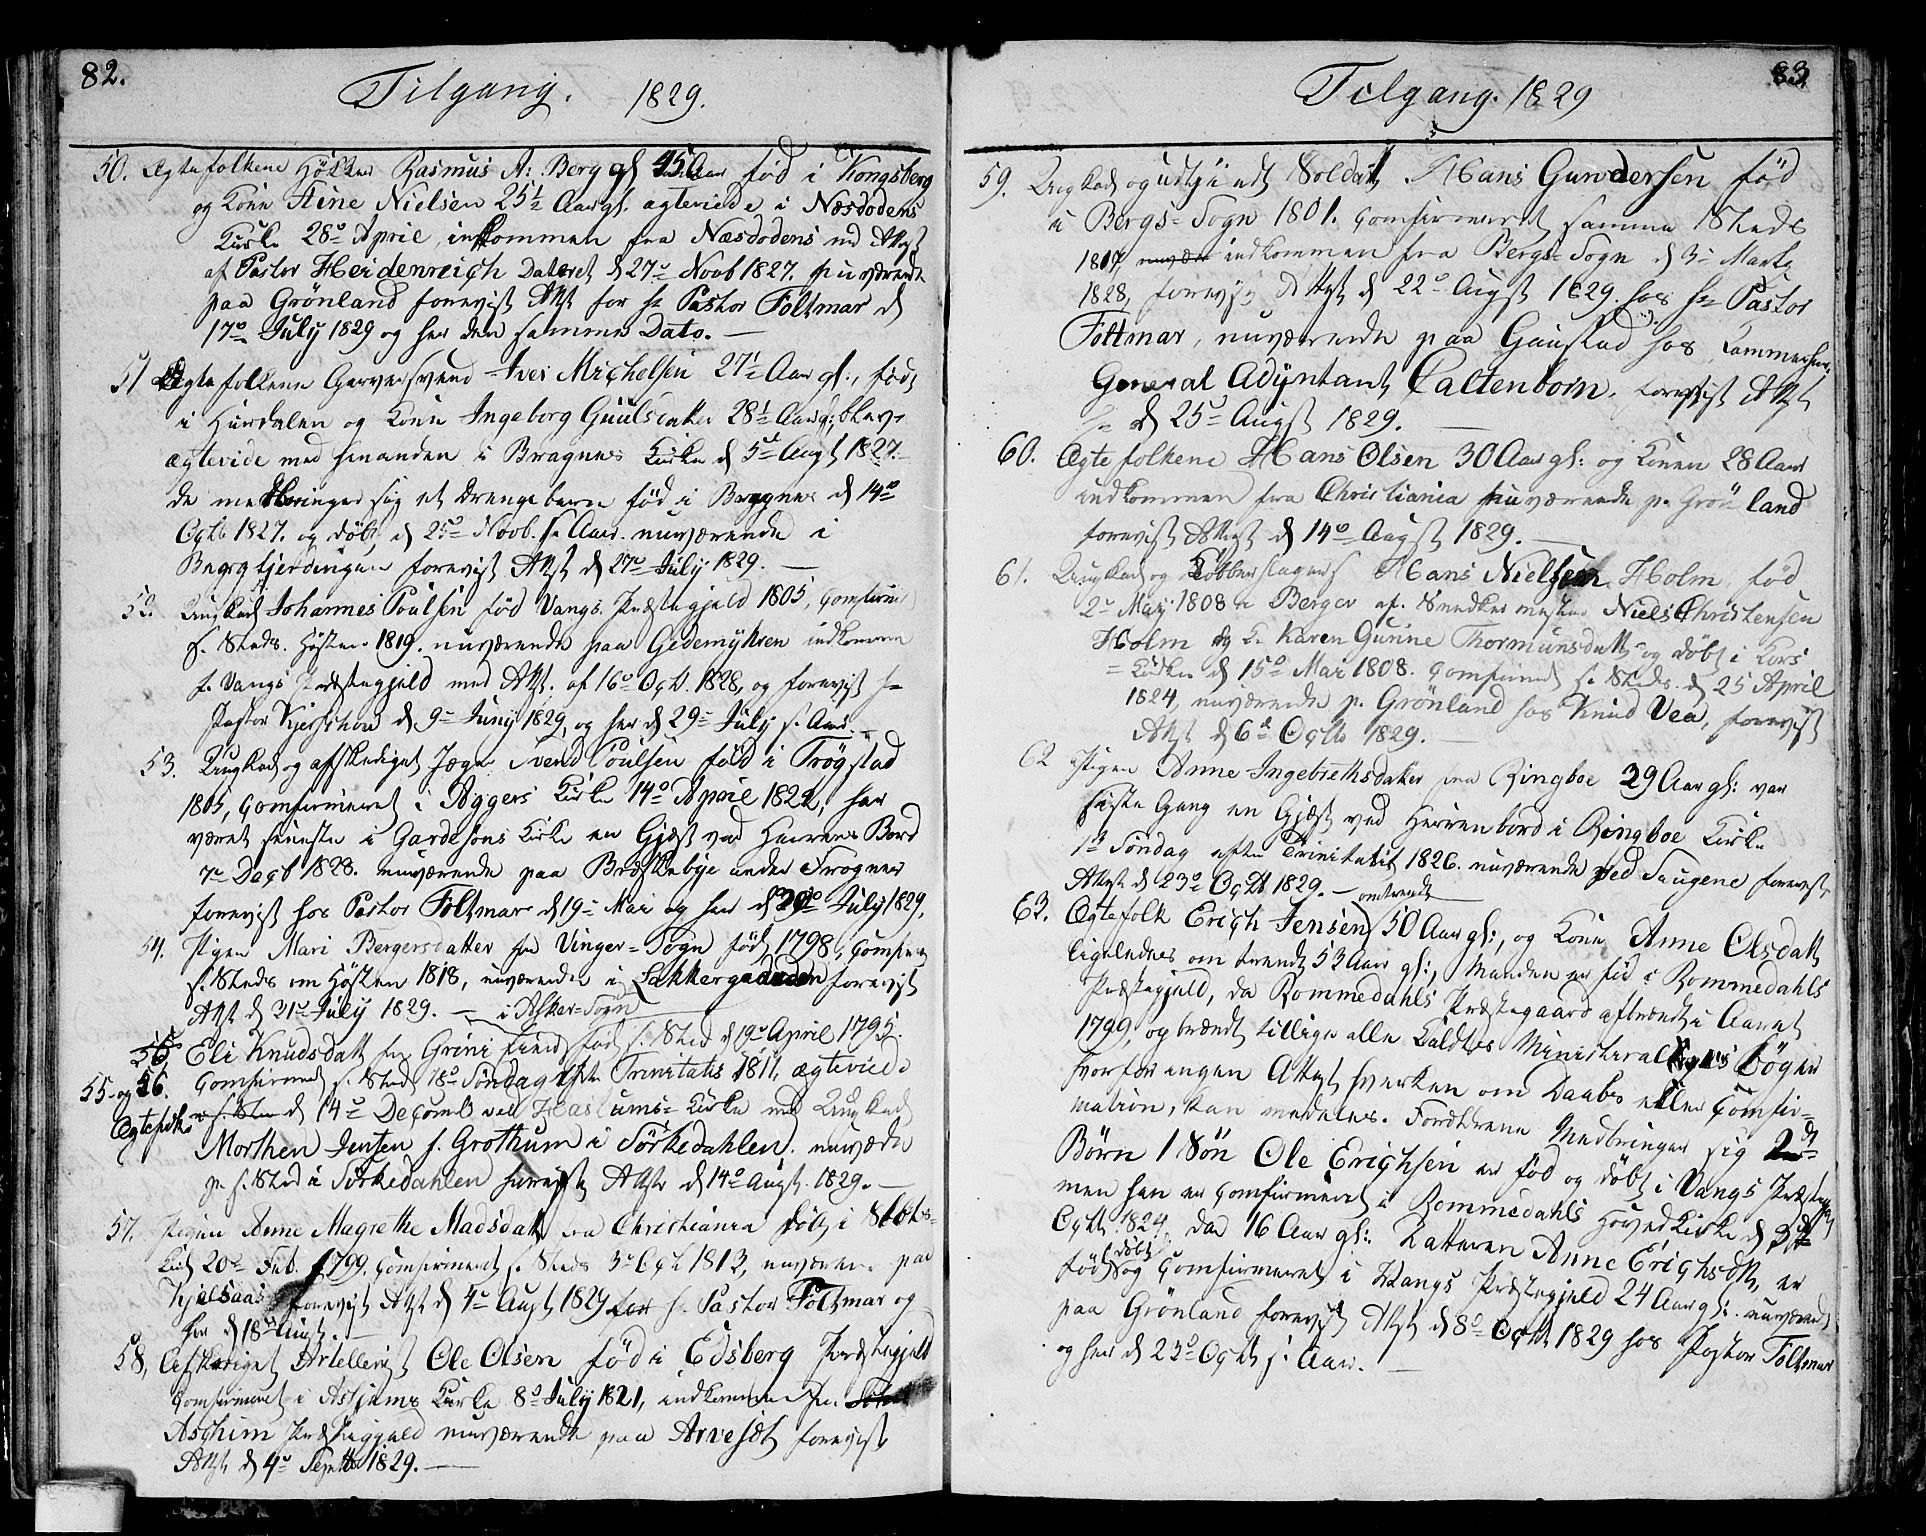 82.
Tilgang. 1829.
50. Ægtefolkene Høkker Rasmus A: Berg gl 45 Aar fød i Kongsberg
og Kone Stine Nielsen 25½ Aar gl. ægteviede i Næsdodens
Kirke 28de April, indkommen fra Næsdodens med Attest
af Pastor Heidenreich Dateret d 27de Novb 1827. nuværende
paa Grönland forevist Attst for Hr Pastor Foltmar d
17de July 1829 og her den samme Dato. —
51 Ægtefolkene Garversvend Iver Michelsen 27½ Aar gl., født
i Hurdalen og Kone Ingeborg Guulsdatter 28½ Aar gl: blev
ægtevide med hinanden i Bragnes Kirke d 5te Augt 1827.
de medbringer sig et Drengebarn fød i Bragnes d 14de
Octb 1827. og døbt d 25de Novb. s. Aar. nuværende i
fjerdingen forevist Attst d 27de July 1829. —
52. Ungkarl Johannes Poulsen fød Vangs Præstegjeld 1805, Confirm
s. Steds. Høsten 1819. nuværende paa Gedemyhren indkommen
f. Vangs Præstegjeld med Attst. af 16de Octb. 1828, og forevist Hr
Pastor Kjerschow d. 9de Juny 1829, og her d 29de July s. Aar. —
53. Ungkarl og afskediget Jæger Svend Poulsen fød i Trögstad
1805, Comfirmeret i Aggers Kirke 14de April 1822, har
været seneste i Gardesøns Kirke en Gjæst ved Herrens Bord
7de Decb 1828. nuværende paa Briskebye under Frogner
forevist hos Pastor Foltmar d 19de Mai og her d 29de July 1829.
54. Pigen Mari Bergersdatter fra Vinger-Sogn fød 1798, Comfirm
s. Steds om Høsten 1818, nuværende i Lakkergaden forevist
Attst d 31te July 1829. — i Asker-Sogn
55 Eli Knudsdatt fra Grini fød s. Sted d 19de April 1795.
55 og 56. Comfirmeret s. Sted 18de Søndag efter Trinitatis 1811, ægteviede
Ægtefolk d 14de Decemb ved Haslums-Kirke med Ungkarl
Morthen Jensen f. Grothum i Sörkedahlen. nuværde
p. s. Sted i Sörkedahlen forevist Attste d 14de Augst. 1829. —
57. Pigen Anne Magrethe Madsdatt fra Christiania døbt i Slots-
Kirke 20de Feb. 1799. Comfirmeret s. Steds 3de Oct 1813, nuværen. paa
Kjelsaas forevist Attst d 4de Augt 1829 for Hr Pastor Foltmar og
her d 18de Augt. —
58, Afskediget Artellerist Ole Olsen fød i Edsberg Præstegjeld
Comfirmeret i Askims Kirke 8de July 1821, indkommen fra
Aschim Præstegjeld nuværende paa Arvesdt forevist
Attst, d 4de Septb 1829. —
83
Tilgang. 1829
59. Ungkarl og udtjendt Soldat Hans Gundersen fød
i Bergs-Sogn 1801. Comfirmeret samme Steds
1817, indkommen fra Bergs-Sogn d 3de Marts
1828, forevist Attst d 22de Augst 1829. hos Hr Pastor
Foltmar, nuværende paa Gaustad hos Kammerher,
General Adjntant Caltenborn. forevist Attst
d 25de Augst 1829. —
60. Ægtefolkene Hans Olsen 30 Aar gl: og Konen 28 Aar
indkommen fra Christiania nuværende p. Grönland
forevist Attst d 14de Augst 1829. —
61. Ungkarl og Kobberslager Hans Nielsen Holm, fød
2de May 1808 i Bergen af. Snedkermester Niels Christensen
Holm og K. Karen Gurine Thormunsdatt og døbt i Kors
-Kirke d 15de Mai 1808. Comfirmered s. Steds. d 25 April
1824, nuværende p. Grönland hos Knud Vea, forevist
Attst d 6te Octb 1829. —
62 Pigen Anne Ingebrethsdatter fra Ringboe 29 Aar gl: var
sidste Gang en Gjæst ved Herrenbord i Ringboe Kirke
1ste Søndag efter Trinitatis 1826. nuværende ved Saugene forevist,
Attst d 23de Octb 1829. — omtrendt
63. Ægtefolk Erich Jensen 50 Aar gl:, og Kone Anne Olsdatt
ligeledes omtrendt 53 Aar gl:, Manden er fød i Rommedahls
Præstegjeld, da Rommedahls Præstegaard afbrendt i Aaret
1799, og brændt tillige alle Ældtes Ministeral Bøger
hvorfor ingen Attest hverken om Daabes eller Comfir=
mation, kan medeles. Forældrene Medbringer sig 2de
Børn 1 Søn Ole Erichsen er fød og døbt i Vangs Præstegjeld
men han er Comfirmeret i Rommedahls Hoved Kirke d 3de
Octb 1824, da 16 Aar gl: Datteren Anne Erichsdtt, er
fød døbt og Comfirmeret i Wangs Præstegjeld 24 Aar gl:. nuværend
paa Grönland forevist Attst d 8de Octb 1829 hos Pastor Foltmar
og her d 23de Octb s. Aar. —